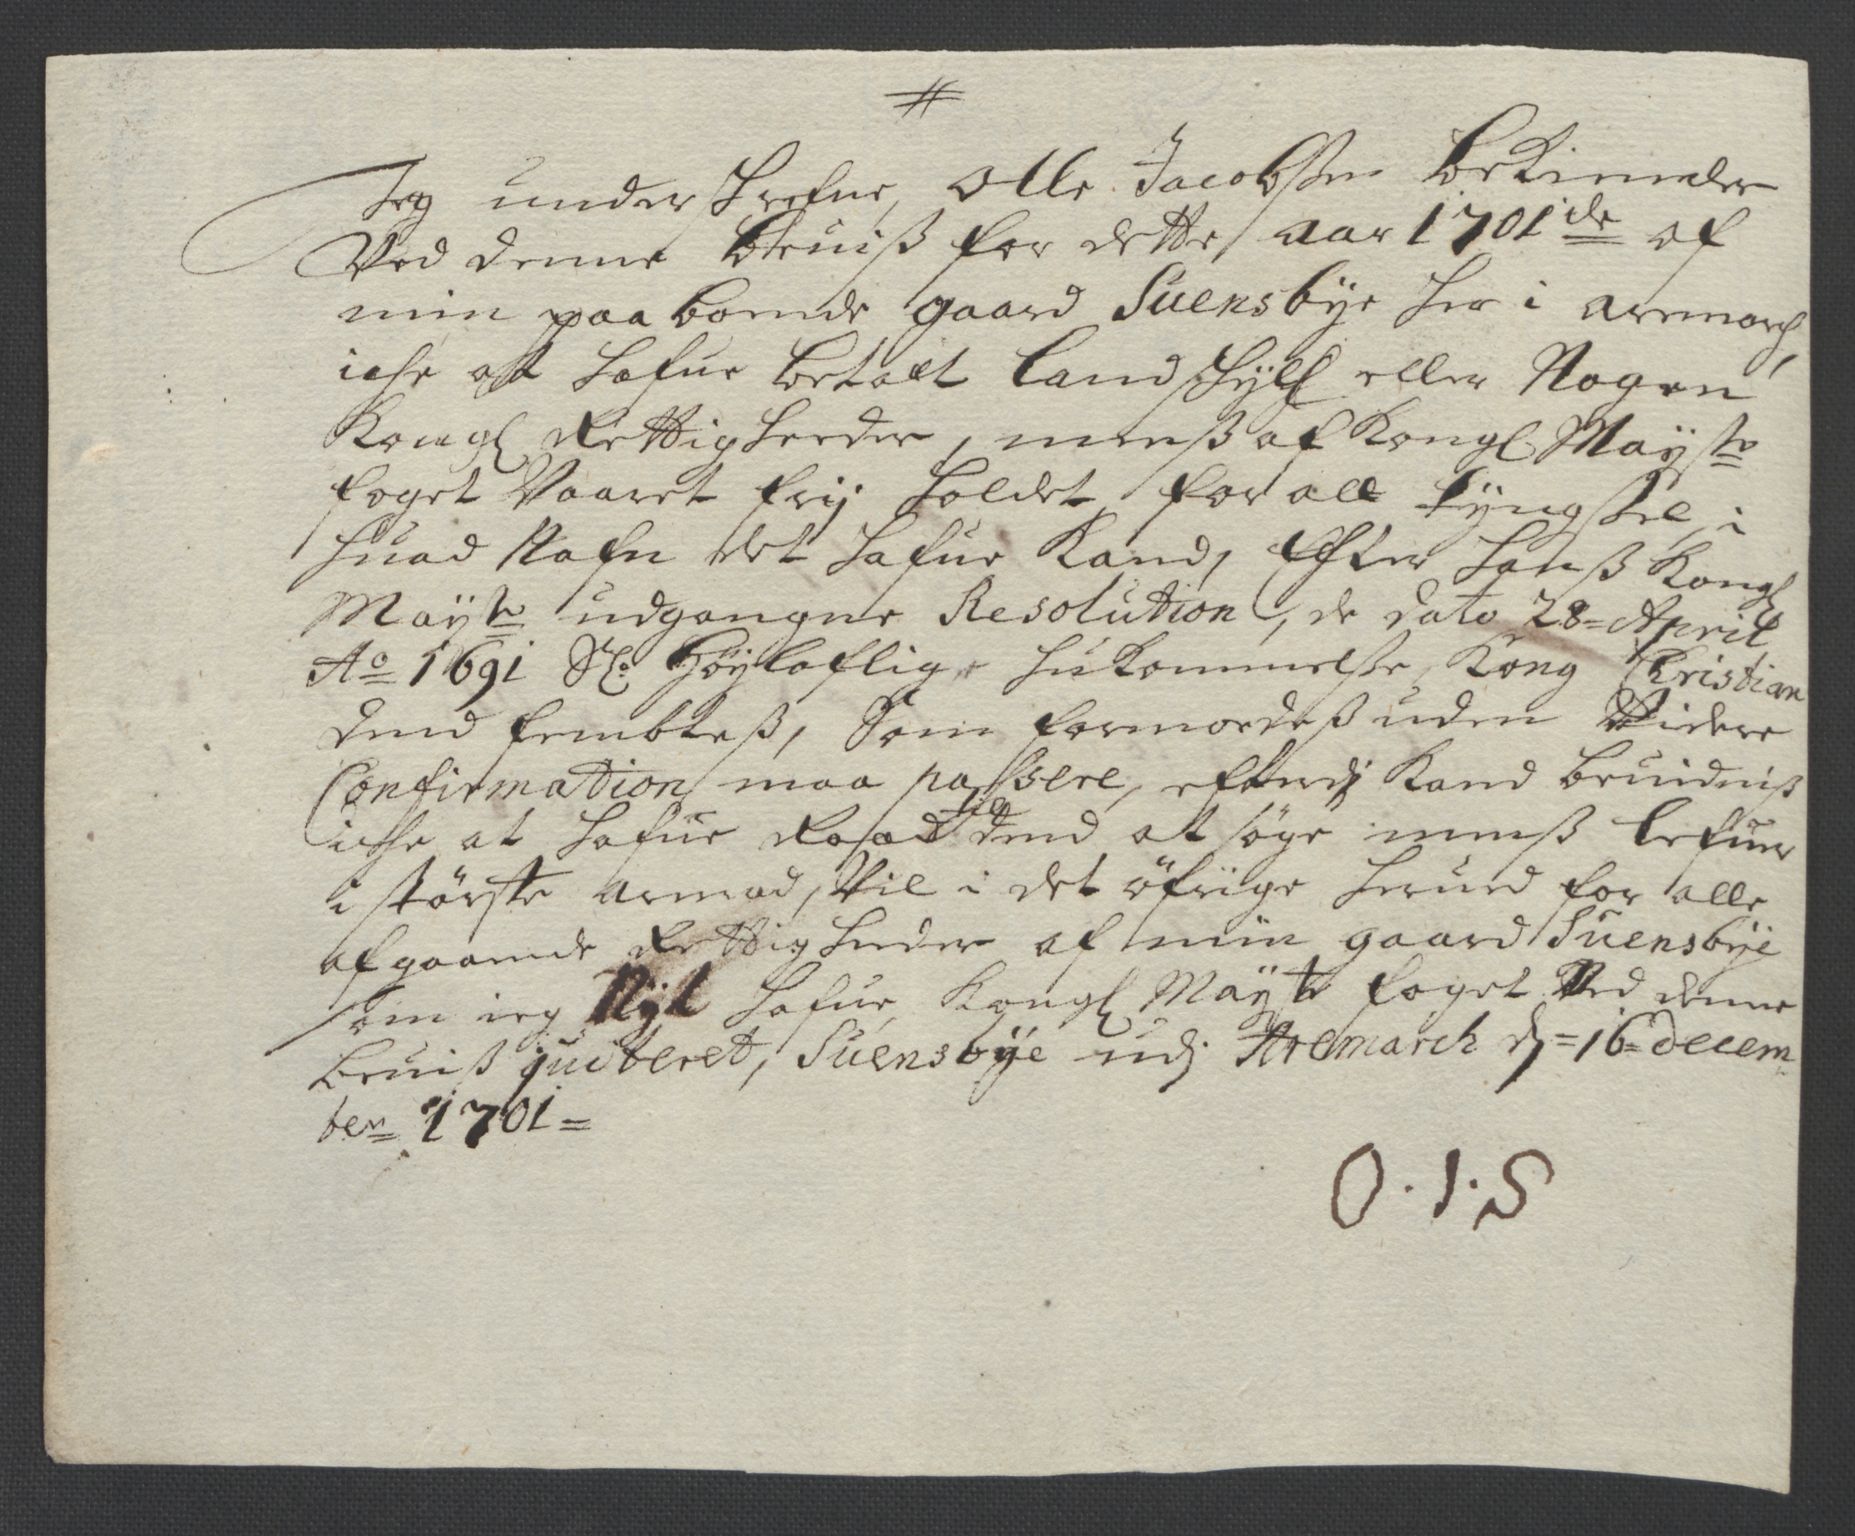 #
Jeg underschrefne, Olle Jacobsen bekiender
Ved denne beviß for dette aar 1701de af
min paa boende gaard Suensbÿe her i aremarch,
iche at hafue betalt landschÿld eller Nogen
Kongl Rettigheeder, menß af Kongl Maÿsts
foget Vaaret frij holdet, for all tÿngsel, i
huad Nafn det hafue Kand, Efter hanß Kongl
Maÿts udgangne Resolution, de dato 28= April
Ao 1691 Sl. Höÿloflige hukommelse, Kong Christian
dend fembteß, Som formoedeß uden Widere
Confirmation maa passere, efterdj Kand beuidniß
iche at hafue Raad til dend at söge menß lefuer
i störste armod, Vil i det öfrige herued for alle
afgaaende Rettigheder af min gaard Suensbÿe
som ieg Nÿt hafue, Kongl Maÿts foget Ved denne
beuiß quiteret, Suensbÿe udj Aremarch dj= 16= decem-
ber= 1701=
O.I.S